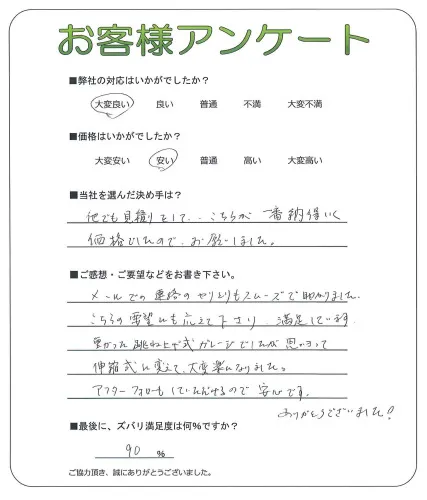 お客様アンケート
■弊社の対応はいかがでしたか?
大変良い 良い 普通 不満 大変不満
■価格はいかがでしたか?
大変安い 安い 普通 高い 大変高い
■当社を選んだ決め手は?
他でも見積りをして、こちらが一番納得いく
価格でしたので、お願いしました。
■ご感想・ご要望などをお書き下さい。
メールでの連絡のやりとりもスムーズで助かりました。
こちらの要望にも応えて下さり、満足しています。
重かった跳ね上げ式ガレージでしたが思い切って
伸縮式に変えて、大変楽になりました。
アフターフォローもしていただけるので安心です。
ありがとうございました!
■最後に、ズバリ満足度は何%ですか?
90 %
ご協力頂き、誠にありがとうございました。